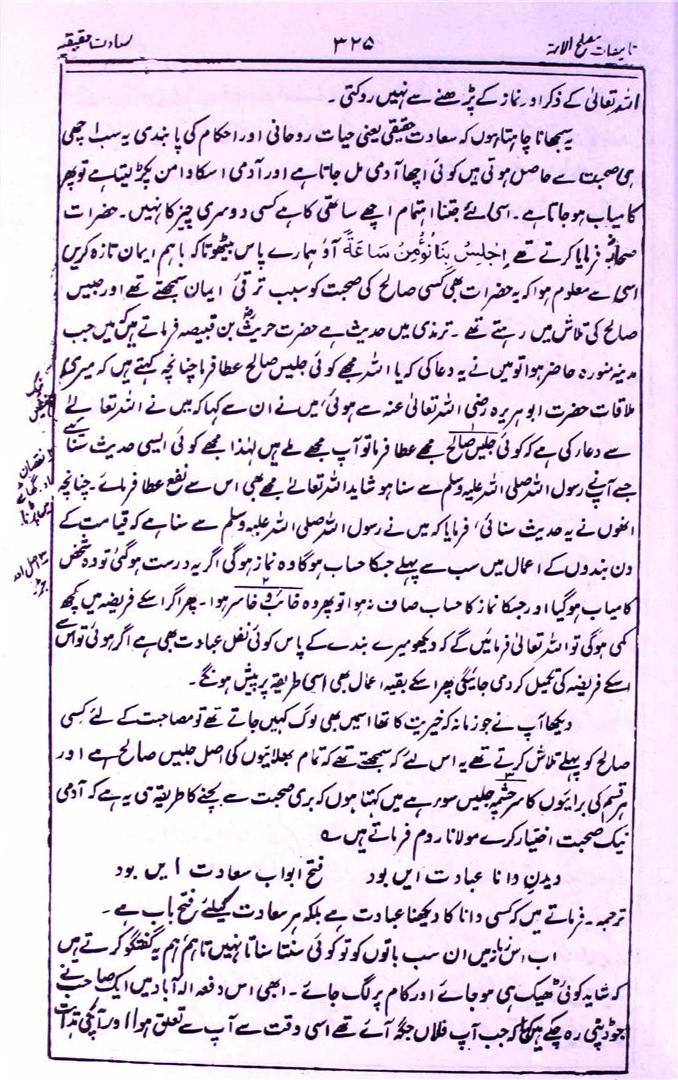 تالیفات مصلح الامت ۳۲۵ سعادت حقیقیہ
اللہ تعالیٰ کے ذکر اور نماز کے پڑھنے سے نہیں روکتی۔
یہ سمجھانا چاہتا ہوں کہ سعادت حقیقی یعنی حیات روحانی اور احکام کی پابندی یہ سب اچھی
ہی صحبت سے حاصل ہوتی ہیں کوئی اچھا آدمی مل جاتا ہے اور آدمی اسکا دامن پکڑ لیتا ہے تو پھر
کامیاب ہوجاتا ہے۔ اسی لئے جتنا اہتمام اچھے ساتھی کا ہے کسی دوسری چیز کا نہیں۔ حضرات
صحابہؓ فرمایا کرتے تھے اِجْلِسْ بِنَا نُؤْمِنْ سَاعَةً آؤ ہمارے پاس بیٹھو تاکہ باہم ایمان تازہ کریں
اسی سے معلوم ہوا کہ یہ حضرات بھی کسی صالح کی صحبت کو سبب ترقیٔ ایمان سمجھتے تھے اور جلیس
صالح کی تلاش میں رہتے تھے۔ ترمذی میں حدیث ہے حضرت حریثؓ بن قبیصہ فرماتے ہیں کہ میں جب
مدینہ منورہ حاضر ہوا تو میں نے یہ دعا کی کہ یا اللہ مجھے کوئی جلیس صالح عطا فرما چنانچہ کہتے ہیں کہ میری
ملاقات حضرت ابوہریرہ رضی اللہ تعالیٰ عنہ سے ہوئی، میں نے ان سے کہا کہ میں نے اللہ تعالےٰ
سے دعا کی ہے کہ کوئی جلیس صالح مجھے عطا فرما تو آپ مجھے ملے ہیں لہٰذا مجھے کوئی ایسی حدیث سنائیے
جسے آپنے رسول اللہ صلی اللہ علیہ وسلم سے سنا ہو شاید اللہ تعالےٰ مجھے بھی اس سے نفع عطا فرمائے۔ چنانچہ
انھوں نے یہ حدیث سنائی، فرمایا کہ میں نے رسول اللہ صلی اللہ علیہ وسلم سے سنا ہے کہ قیامت کے
دن بندوں کے اعمال میں سب سے پہلے جسکا حساب ہوگا وہ نماز ہوگی اگر یہ درست ہوگئی تو وہ شخص
کامیاب ہوگیا اور جسکا نماز کا حساب صاف نہ ہوا تو پھر وہ خائب و خاسر ہوا۔ پھر اگر اسکے فریضہ میں کچھ
کمی ہوگی تو اللہ تعالیٰ فرمائیں گے کہ دیکھو میرے بندے کے پاس کوئی نفل عبادت بھی ہے اگر ہوئی تو اس سے
اسکے فریضہ کی تکمیل کردی جائیگی پھر اسکے بقیہ اعمال بھی اسی طریقہ پر پیش ہونگے۔
دیکھا آپ نے جو زمانہ کہ خیریت کا تھا اسمیں بھی لوگ کہیں جاتے تھے تو مصاحبت کے لئے کسی
صالح کو پہلے تلاش کرتے تھے یہ اس لئے کہ سمجھتے تھے کہ تمام بھلائیوں کی اصل جلیس صالح ہے اور
ہر قسم کی برائیوں کا سرچشمہ جلیس سوء ہے میں کہتا ہوں کہ بری صحبت سے بچنے کا طریقہ ہی یہ ہے کہ آدمی
نیک صحبت اختیار کرے مولانا روم فرماتے ہیں ؎
دیدنِ دانا عبادت ایں بود فتح ابواب سعادت ایں بود
ترجمہ۔ فرماتے ہیں کہ کسی دانا کا دیکھنا عبادت ہے بلکہ ہر سعادت کیلئے فتح باب ہے۔
اب اس زمانہ میں ان سب باتوں کو تو کوئی سنتا سناتا نہیں تاہم ہم یہ گفتگو کرتے ہیں
کہ شاید کوئی ٹھیک ہی ہوجائے اور کام پر لگ جائے۔ ابھی اس دفعہ الہ آباد میں ایک صاحب نے
جو ڈپٹی رہ چکے ہیں کہا کہ جب آپ فلاں جگہ آئے تھے اسی وقت سے آپ سے تعلق ہوا اور آپکی